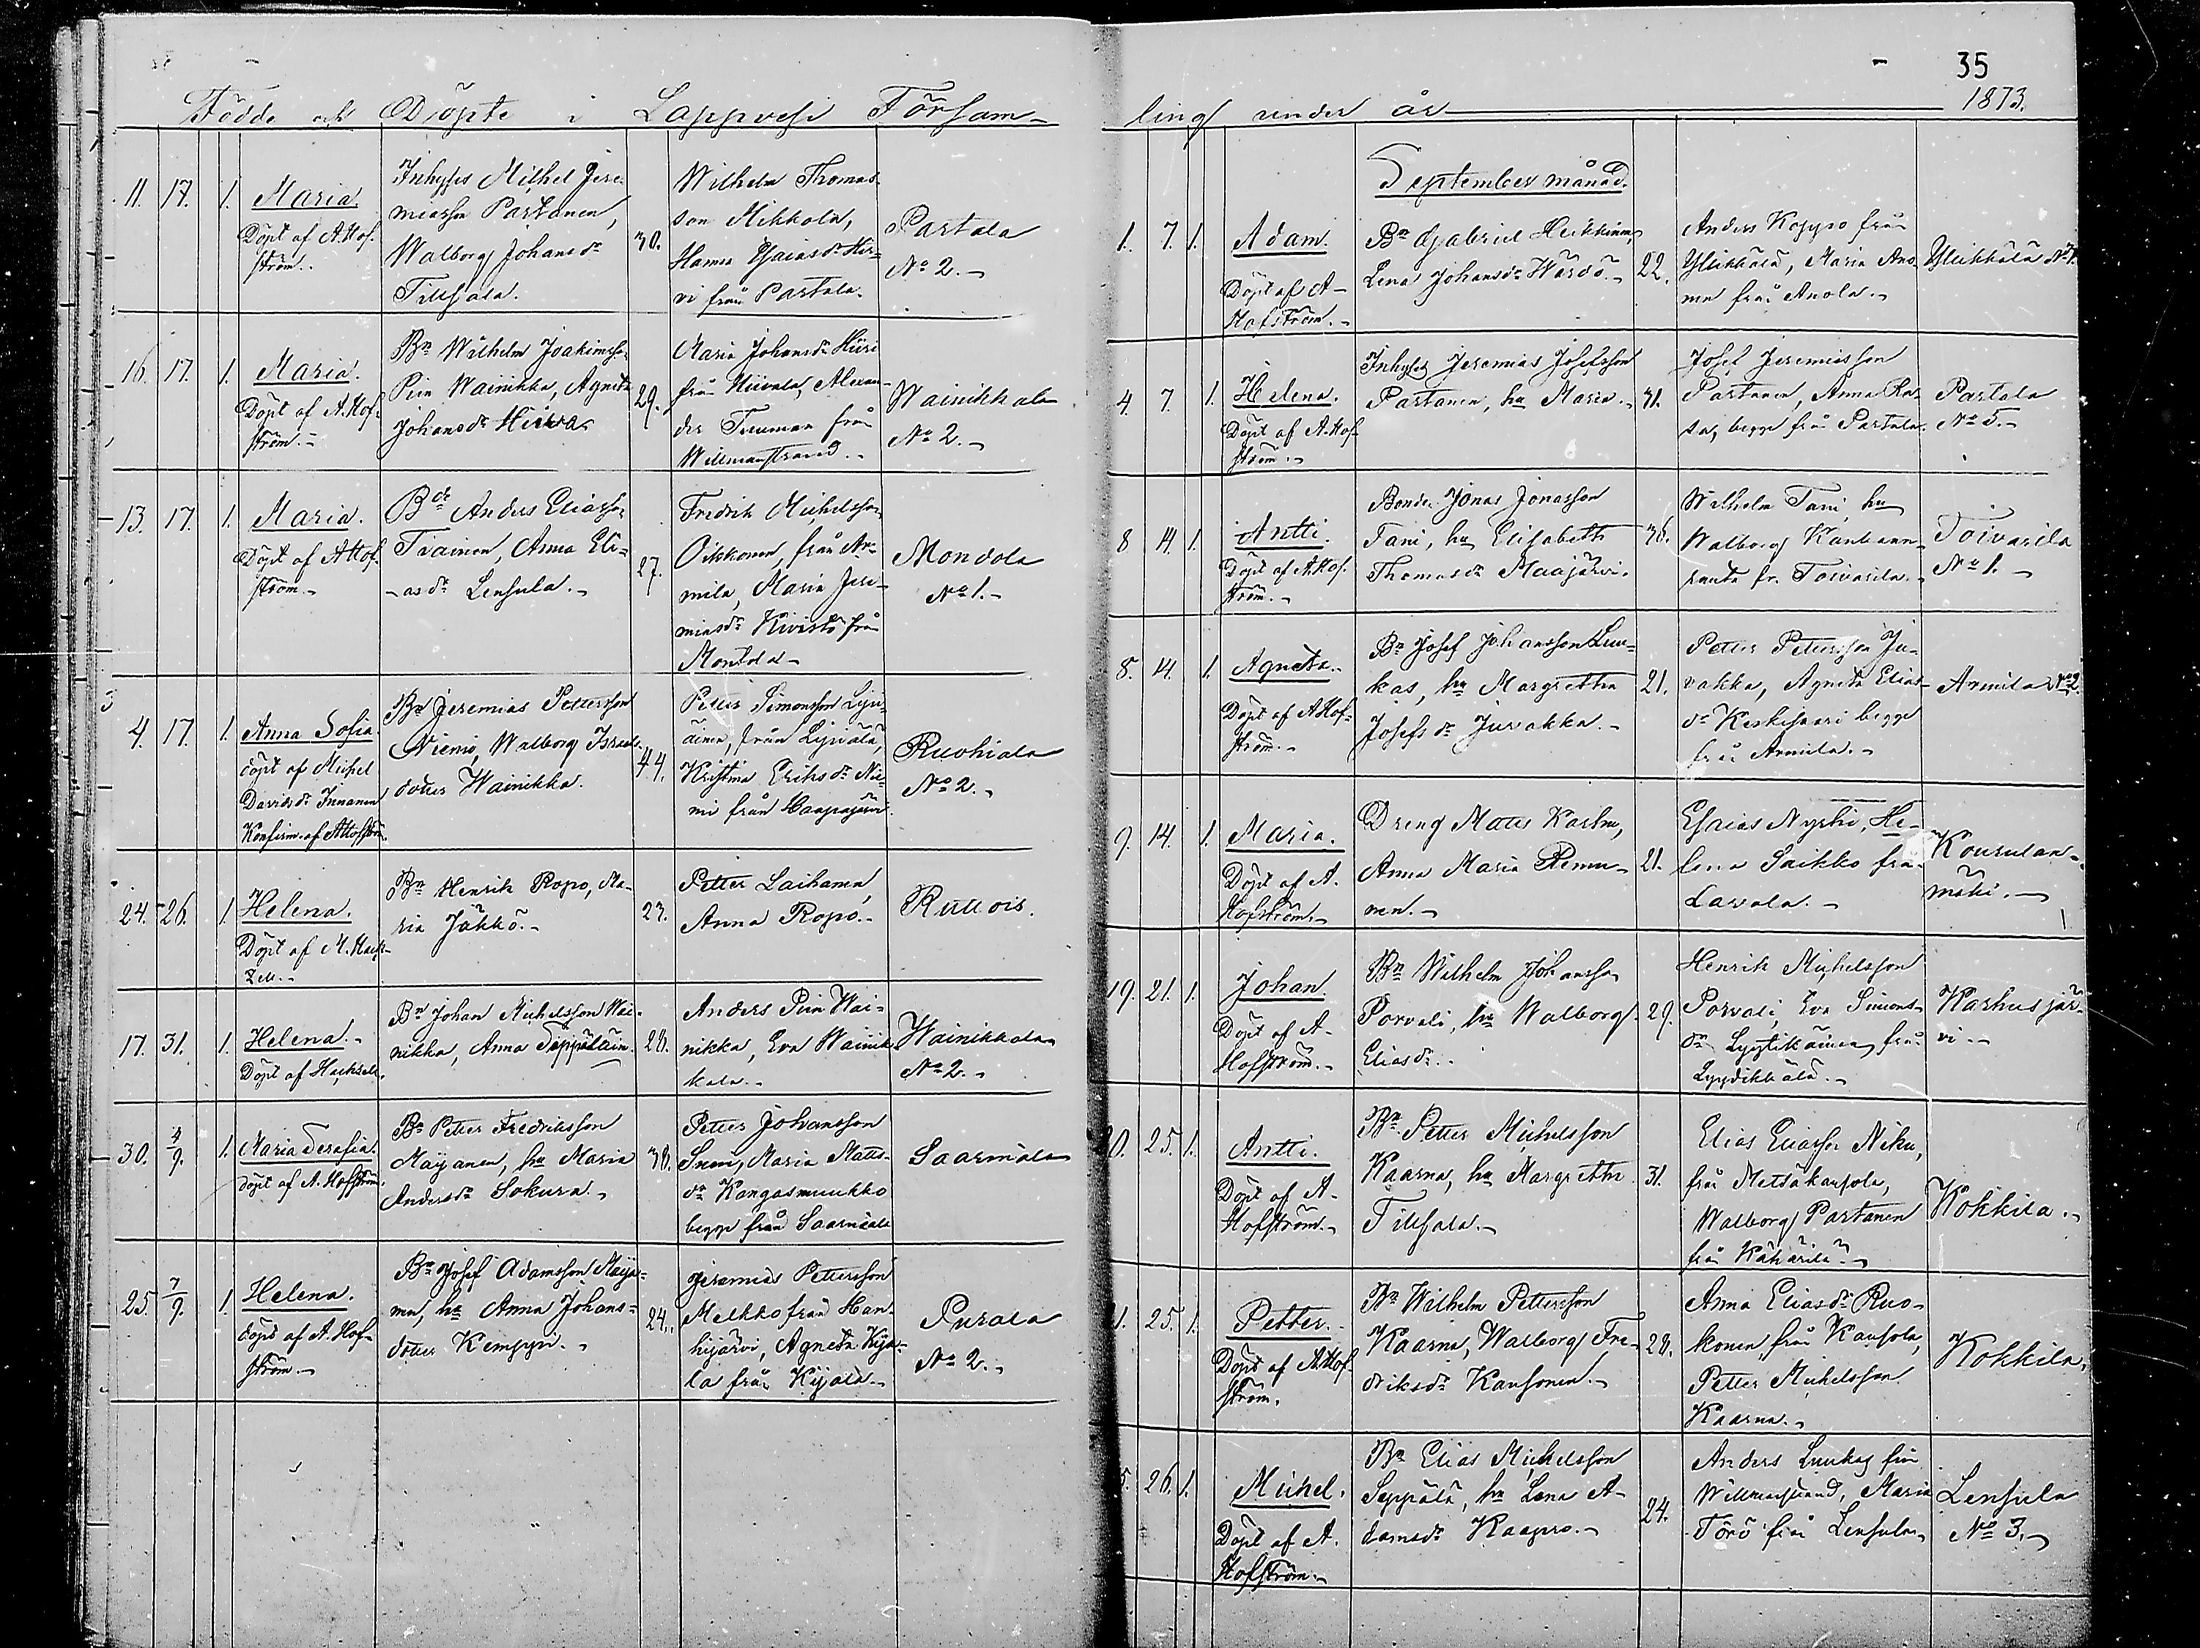 35
Födde och Döpte i Lappvesi Församling under år 1873.
11. 17. 1. Maria.
Döpt af A. Hof-
ström.
Inhyses Michel Jere-
miasson Partanen,
Walborg Johansdr
Tillsala.
30.
Wilhelm Thomas-
son Mikkola,
Hanna Esaiasdr Hir-
vi från Partala.
Partala
No 2.
16. 17. 1. Maria.
Döpt af A. Hof-
ström.
Bn Wilhelm Joakimsson
Pun Wainikka, Agneta
Johansdr Hiiva
29.
Maria Johansdr Hiiri
från Hiivala, Alexan-
der Tiuman från
Willmanstrand.
Wainikkala
No 2.
13. 17. 1. Maria.
Döpt af A Hof-
ström.
Bde Anders Eliasson
Tiainen, Anna Eli-
asdr Lensula.
27.
Fredrik Michelsson
Oikkonen, från Ar-
mila, Maria Jere-
miasdr Kivistö från
Montola
Mondola
No 1.
4. 17. 1. Anna Sofia.
döpt af Michel
Davidsdr Innanen
Konfirm. af A Hofström.
Bn Jeremias Pettersson
Niemi, Walborg Israels-
dotter Wainikka.
44.
Petter Simonsson Lyij-
äinen, från Lyijälä,
Kristina Eriksdr Nie-
mi från Haapajärvi.
Ruohiala
No 2.
24. 26. 1. Helena.
Döpt af M. Heck-
zell.
Bn Henrik Ropo, Ma-
ria Jäkkö.
23.
Petter Laihanen,
Anna Ropo.
Rutlois.
17. 31. 1. Helena.
Döpt af Heckzell.
Bn Johan Michelsson Wai-
nikka, Anna Seppäläin.
28.
Anders Pun Wai-
nikka, Eva Wainik-
kala.
Wainikkala
No 2.
30. 4/9. 1. Maria Serafia.
döpt af A. Hofström.
Bn Petter Fredriksson
Mäyränen, hu Maria
Andersdr Sokura.
38.
Petter Johansson
Suni, Maria Matts-
dr Kangasmuukko
begge från Saarmäälä
Saarmäla
25. 7/9. 1. Helena.
döpt af A. Hof-
ström.
Bn Josef Adamsson Mäyrä-
nen, hu Anna Johans-
dotter Kemppi.
24.
Jeremias Pettersson
Melkko från Han-
hijärvi, Agneta Kijä-
la från Kijälä.
Purala
No 2.
September månad.
1. 7. 1. Adam.
Döpt af A
Hofström.
Bn Gabriel Heikkinen,
Lena Johansdr Wärdö.
22.
Anders Koppo från
Ylikkälä, Maria Ano-
nen från Anola.
Ylikkälä No 1.
4. 7. 1. Helena.
Döpt af A. Hof-
ström.
Inhyses Jeremias Josefsson
Partanen, hu Maria.
31.
Josef Jeremiasson
Partanen, Anna Ra-
sa, begge från Partala.
Partala
No 5.
8 14. 1. Antti.
Döpt af A. Hof-
ström.
Bonden Jonas Jonasson
Tani, hu Elisabeth
Thomasdr Maajärvi.
38.
Wilhelm Tani, hu
Walborg Kaukaan-
ranta fr. Toivarila.
Toivarila
No 1.
8. 14. 1. Agneta.
Döpt af A Hof-
ström.
Bn Josef Johansson Luu-
kas, hu Margretha
Josefsdr Juvakka.
21.
Petter Pettersson Ju-
vakka, Agneta Elias-
dr Keskisaari begge
från Armila.
Armila No 2
9. 14. 1. Maria.
Döpt af A.
Hofström.
Dreng Matts Karhu,
Anna Maria Remu-
nen.
21.
Esaias Nyrhi, He-
lena Saikko från
Lavola.
Kourulan-
mäki.
19. 21. 1. Johan
Döpt af A
Hofström.
Bn Wilhelm Johansson
Porvali, hu Walborg
Eliasdr.
29.
Henrik Michelsson
Porvali, Eva Simons-
dr Lyytikäinen från
Lyydikkälä.
Karhusjär-
vi.
20. 25. 1. Antti.
Döpt af A
Hofström.
Bn Petter Michelsson
Kaarna, hu Margretha
Tillsala.
31.
Elias Eliasson Niku,
från Metsäkansola,
Walborg Partanen
från Kähärilä.
Kokkila.
1. 25. 1. Petter.
Döpt af A. Hof-
ström.
Bn Wilhelm Pettersson
Kaarna, Walborg Fre-
driksdr Kansonen.
28.
Anna Eliasdr Ruo-
konen från Kansola,
Petter Michelsson
Kaarna.
Kokkila.
5. 26. 1. Michel.
Döpt af A.
Hofström.
Bn Elias Michelsson
Seppälä, hu Lena A-
damsdr Kaapro.
24.
Anders Luukas från
Willmanstrand, Maria
Törö från Lensula
Lensula
No 3.